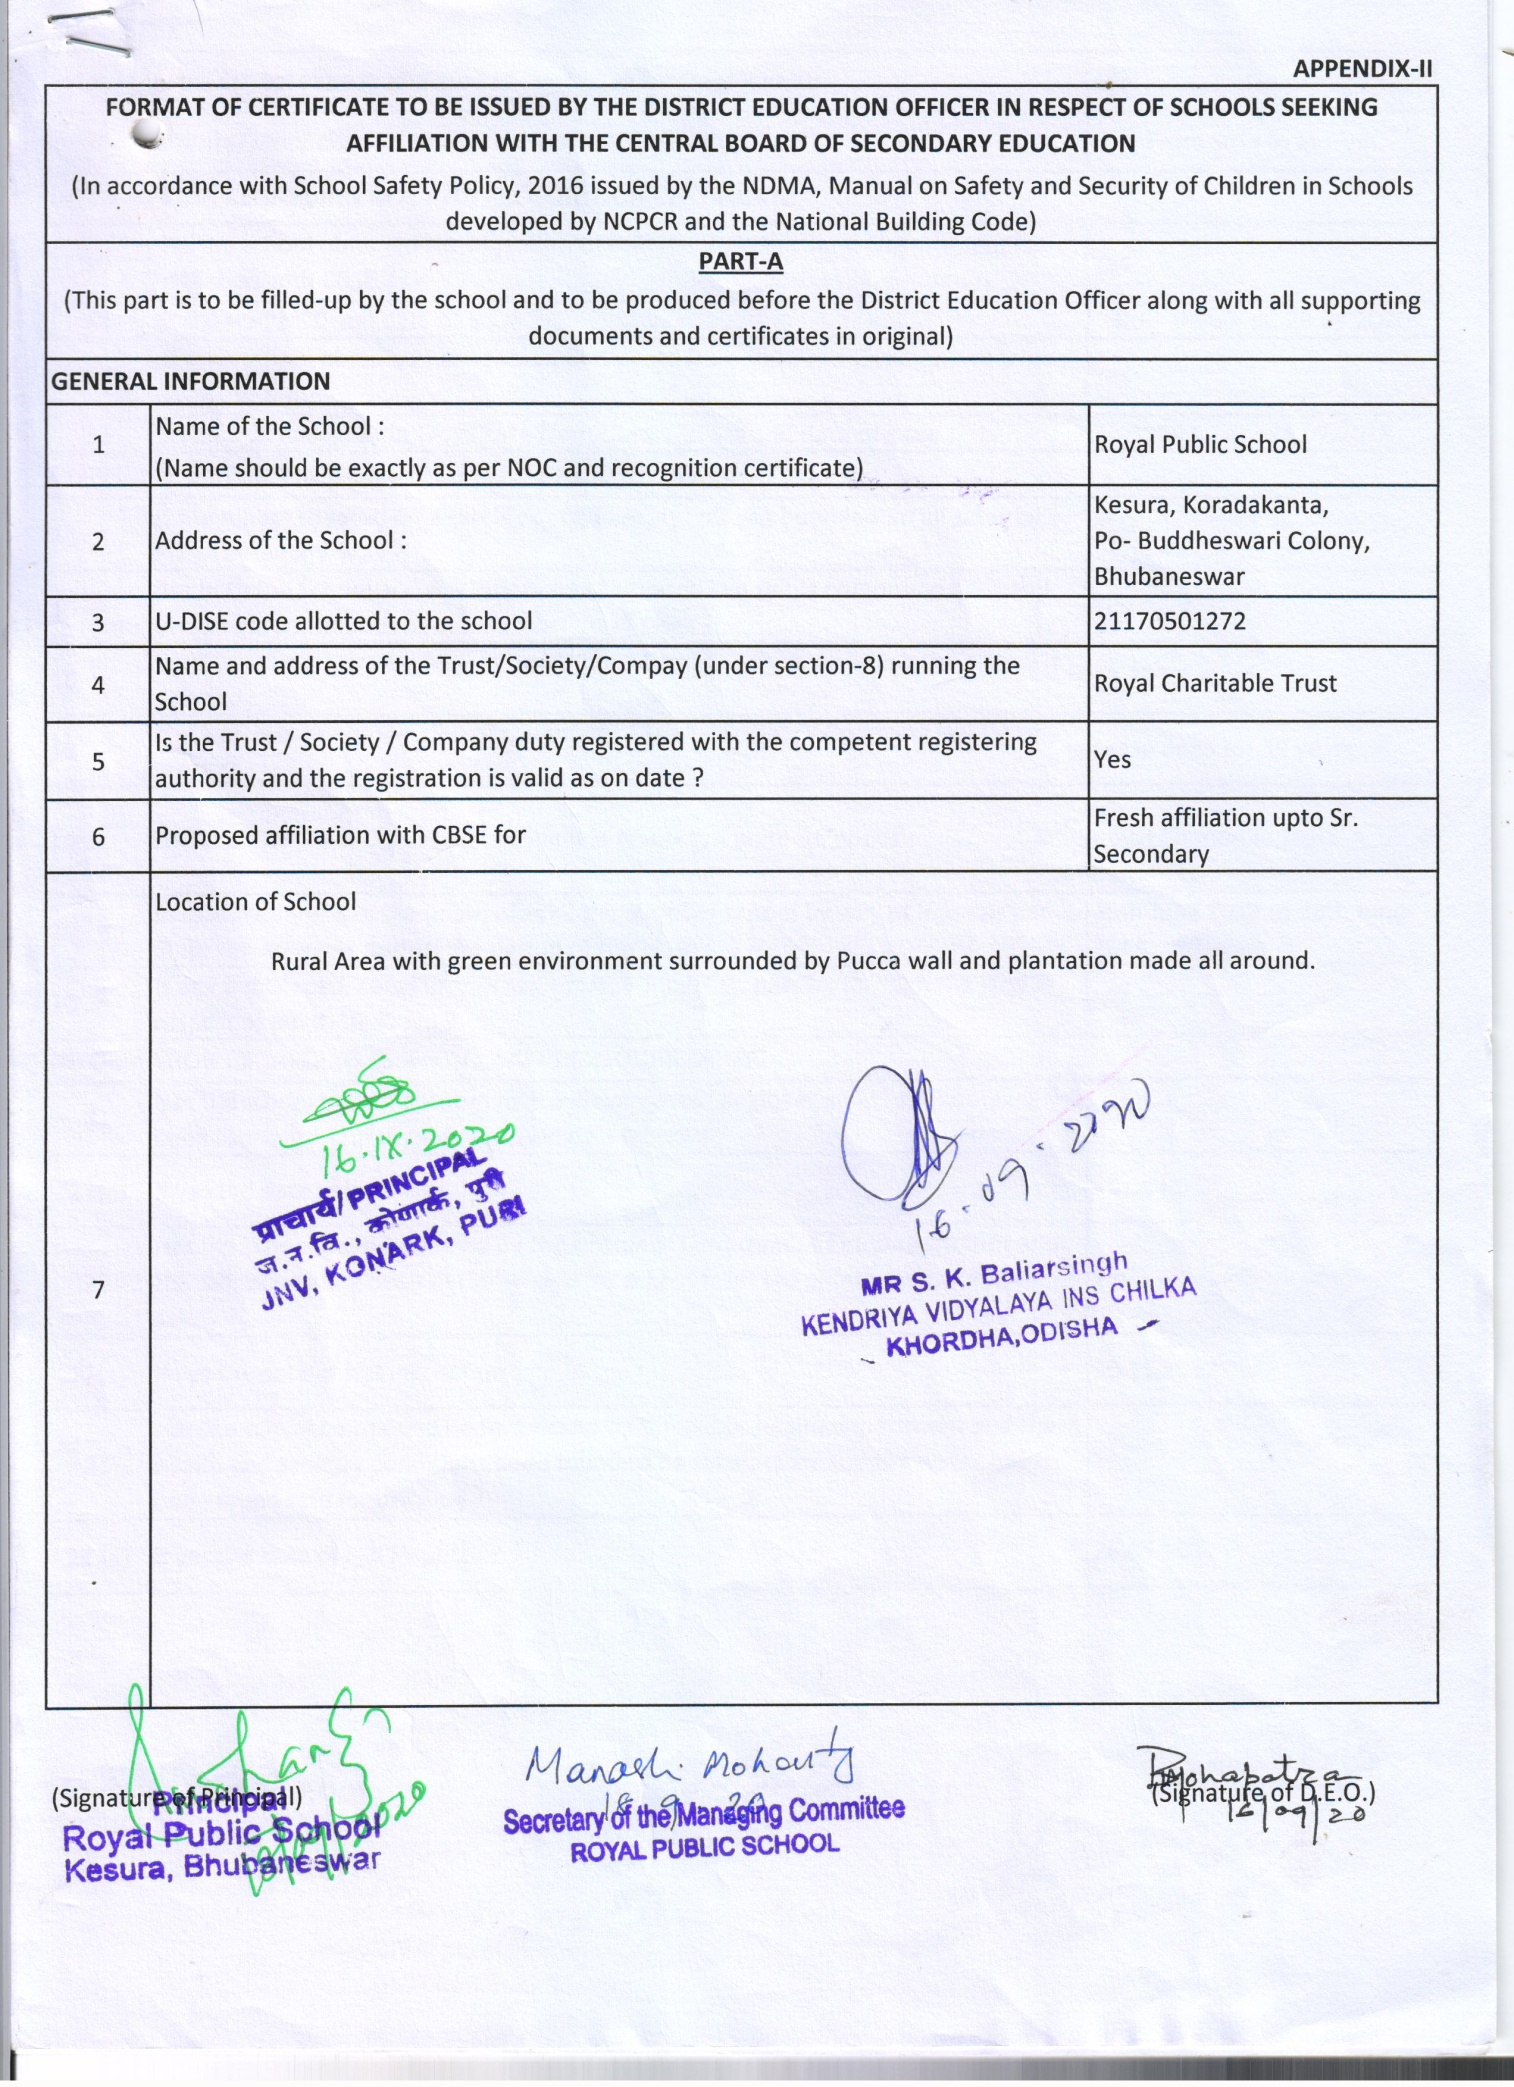 APPENDIX-II
FORMAT OF CERTIFICATE TO BE ISSUED BY THE DISTRICT EDUCATION OFFICER IN RESPECT OF SCHOOLS SEEKING
AFFILIATION WITH THE CENTRAL BOARD OF SECONDARY EDUCATION
(In accordance with School Safety Policy, 2016 issued by the NDMA, Manual on Safety and Security of Children in Schools
developed by NCPCR and the National Building Code)
PART-A
(This part is to be filled-up by the school and to be produced before the District Education Officer along with all supporting
documents and certificates in original)
GENERAL INFORMATION
1
Name of the School :
(Name should be exactly as per NOC and recognition certificate)
Royal Public School
2
Address of the School :
Kesura, Koradakanta,
Po- Buddheswari Colony,
Bhubaneswar
3
U-DISE code allotted to the school
21170501272
4
Name and address of the Trust/Society/Compay (under section-8) running the
School
Royal Charitable Trust
5
Is the Trust / Society / Company duty registered with the competent registering
authority and the registration is valid as on date ?
Yes
6
Proposed affiliation with CBSE for
Fresh affiliation upto Sr.
Secondary
7
Location of School
Rural Area with green environment surrounded by Pucca wall and plantation made all around.
16.IX.2020
प्राचार्य/PRINCIPAL
ज.न.वि., कोणार्क, पुरी
JNV, KONARK, PURI
16.09.2020
MR S. K. Baliarsingh
KENDRIYA VIDYALAYA INS CHILKA
KHORDHA,ODISHA
(Signature of Principal)
Principal
Royal Public School
Kesura, Bhubaneswar
Manashi Mohanty
Secretary of the Managing Committee
ROYAL PUBLIC SCHOOL
Mohapatra
(Signature of D.E.O.)
16/09/20